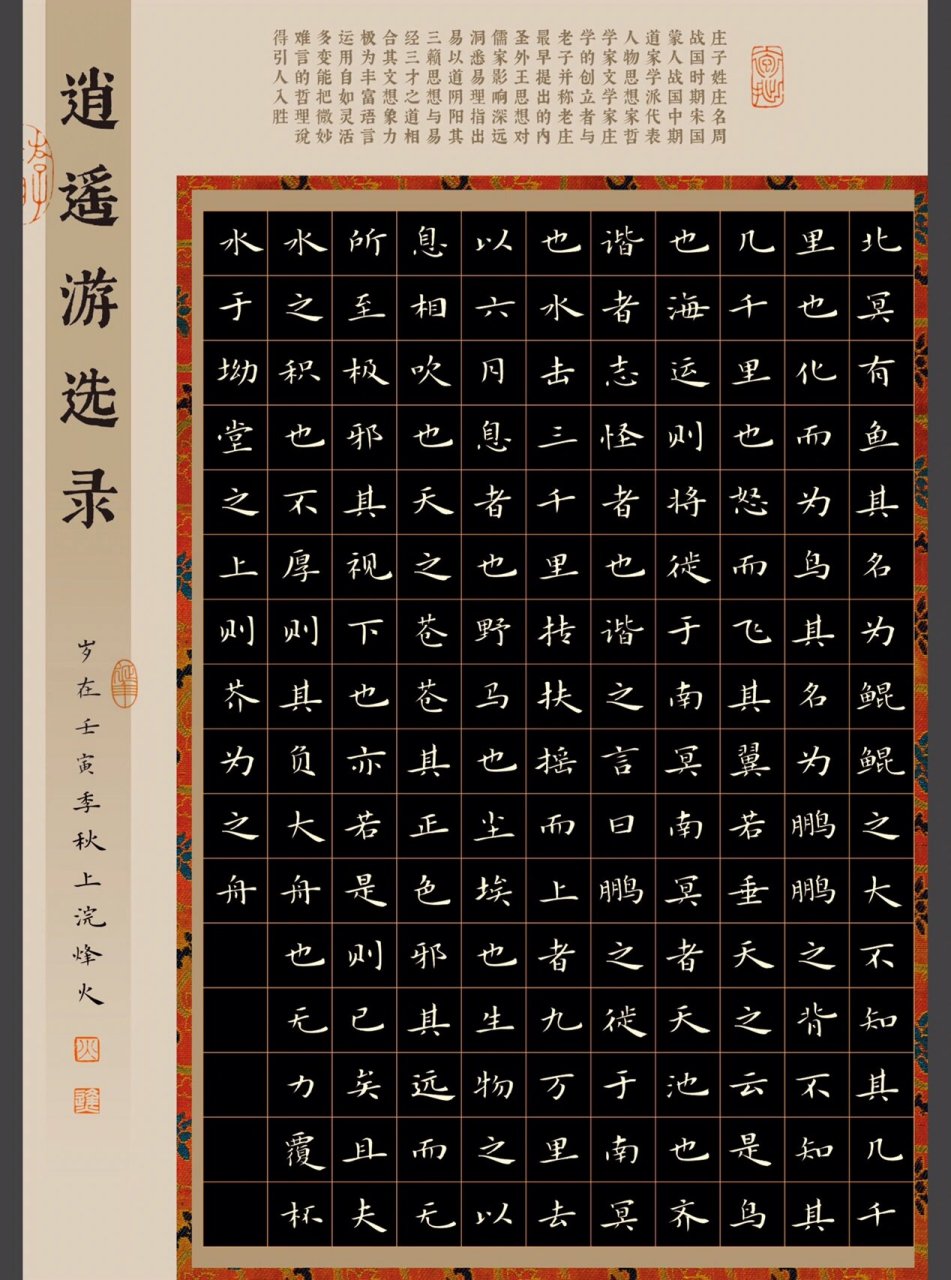 庄子姓庄名周
战国时期宋国
蒙人战国中期
道家学派代表
人物思想家哲
学家文学家庄
学的创立者与
老子并称老庄
最早提出的内
圣外王思想对
儒家影响深远
洞悉易理指出
易以道阴阳其
三籁思想与易
经三才之道相
合其文想象力
极为丰富语言
运用自如灵活
多变能把微妙
难言的哲理说
得引人入胜
北冥有鱼其名为鲲鲲之大不知其几千
里也化而为鸟其名为鹏鹏之背不知其
几千里也怒而飞其翼若垂天之云是鸟
也海运则将徙于南冥南冥者天池也齐
谐者志怪者也谐之言曰鹏之徙于南冥
也水击三千里抟扶摇而上者九万里去
以六月息者也野马也尘埃也生物之以
息相吹也天之苍苍其正色邪其远而无
所至极邪其视下也亦若是则已矣且夫
水之积也不厚则其负大舟也无力覆杯
水于坳堂之上则芥为之舟
逍遥游选录
岁在壬寅季秋上浣烽火